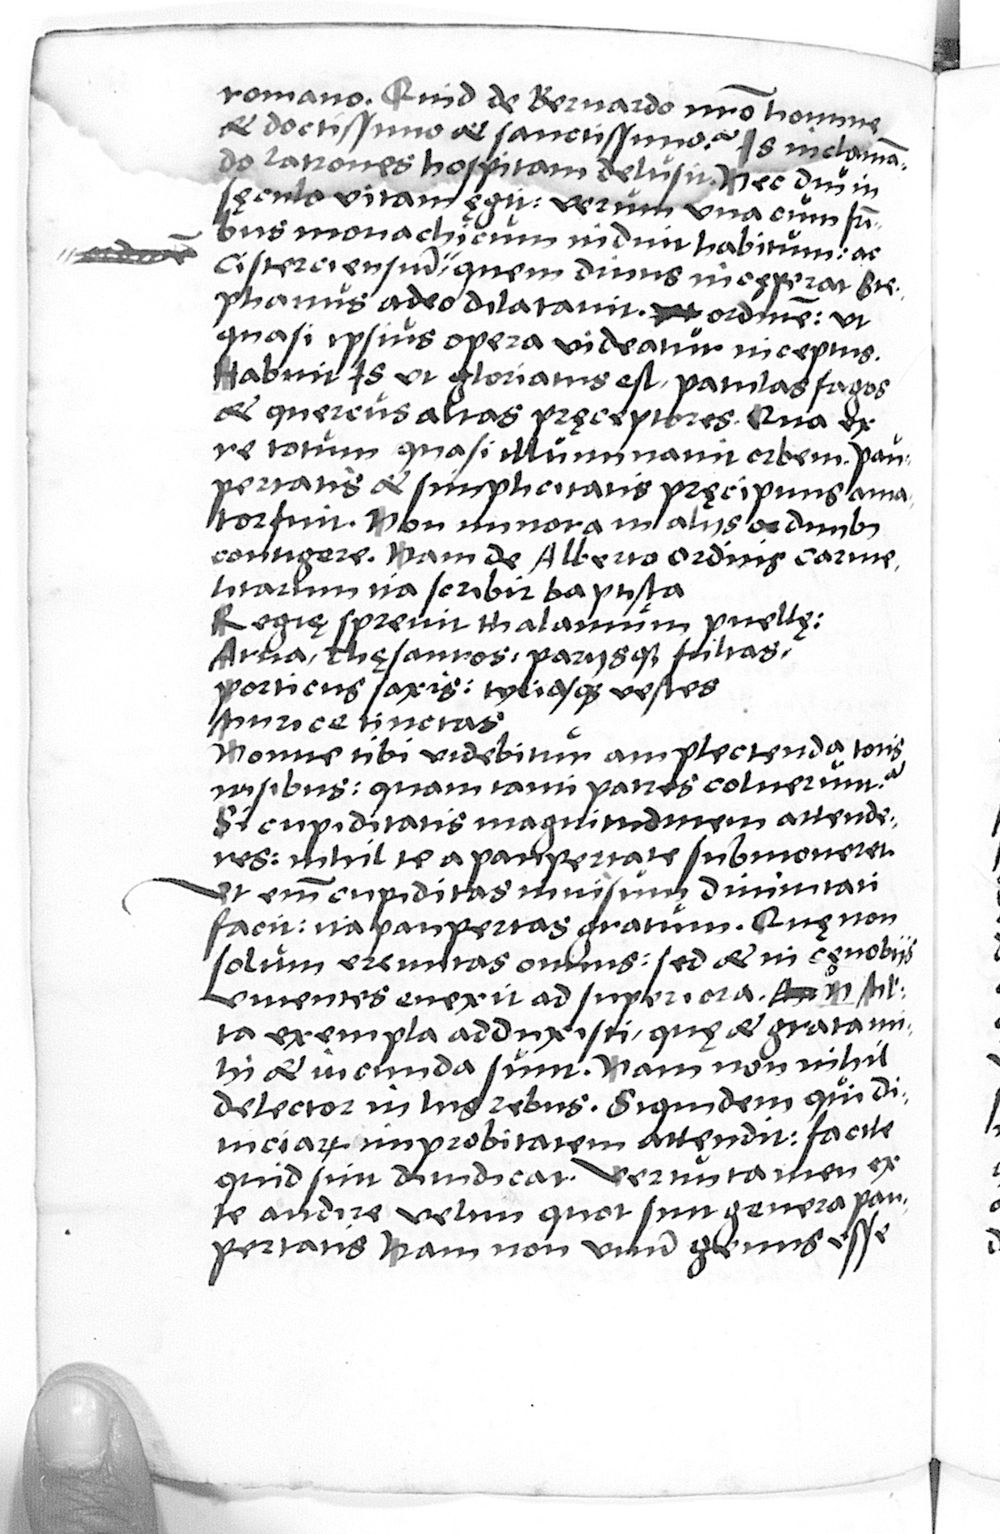 romano. Quid de Bernardo nr̄o homine
& doctissimo & sanctissimo? Is inclamā-
do latrones hospitam delusit. Nec diu in
sęculo vitam ęgit: verum vna cum frī-
bus monachicum induit habitum: ac
ordinē
Cisterciensiū quem diuus incęperat Ste-
phanus adeo dilatauit. ordinē: ut
quasi ipsius opera videatur inceptus.
Habuit Is ut gloriatus est, patulas fagos
& quercus altas pręceptores. Qua ex
re totum quasi illuminauit orbem. Pau-
pertatis & simplicitatis pręcipuus ama-
tor fuit. Non minora in alijs ordinib;
contigere. Nam de Alberto Ordinis carme-
litarum ita scribit baptista
Regię spreuit thalamum puellę:
Arua, thęsauros, parijsq; fultas,
porticus saxis: tyriasq; vestes
Murice tinctas
Nonne tibi videbitur amplectenda totis
nisibus: quam tanti patres coluerunt?
Si cupiditatis magnitudinem attende-
res: nihil te a paupertate submoueret.
Vt em̄ cupiditas inuisum diuinitati
facit: ita paupertas gratum. Quę non
solum eremitas omnis: sed & in cęnobijs
viuentes euexit ad superiora. N Mul-
ta exempla adduxisti, quę & grata mi-
hi & iucunda sunt. Nam non nihil
delector in his rebus. Siquidem qui di-
uiciaꝝ improbitatem attendit: facile
quid sint diiudicat. Veruntamen ex
te audire velim quot sint genera pau-
pertatis Nam non vnū genus esse